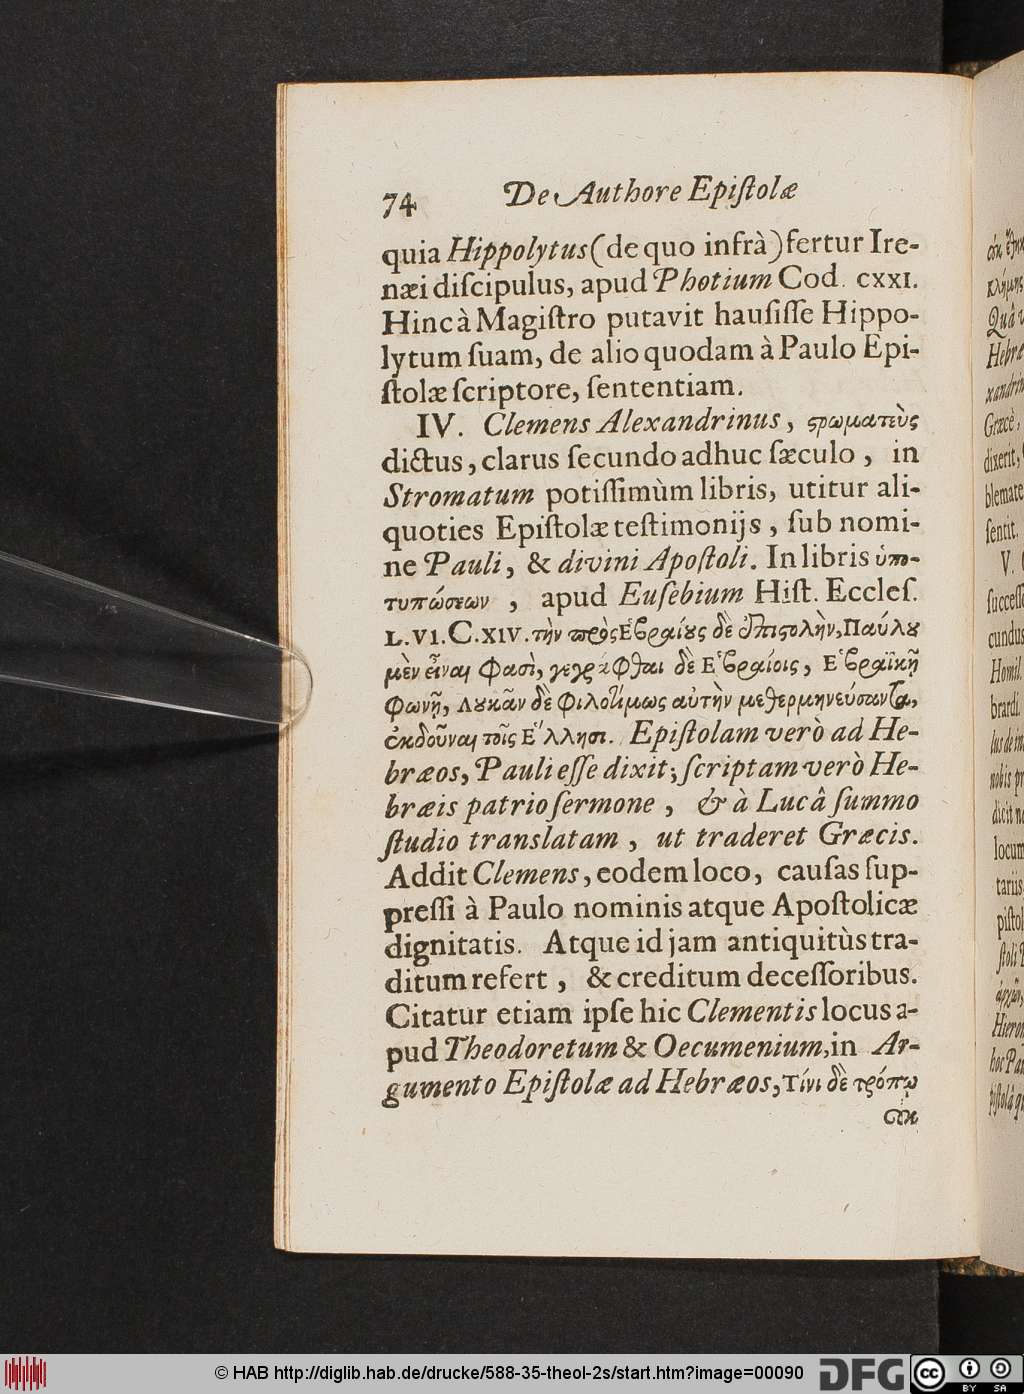 74 De Authore Epistolæ
quia Hippolytus (de quo infrà) fertur Ire-
næi discipulus, apud Photium Cod. CXXI.
Hinc à Magistro putavit hausisse Hippo-
lytum suam, de alio quodam à Paulo Epi-
stolæ scriptore, sententiam.
IV. Clemens Alexandrinus, ϛρωματεὺς
dictus, clarus secundo adhuc sæculo, in
Stromatum potissimùm libris, utitur ali-
quoties Epistolæ testimonijs, sub nomi-
ne Pauli, & divini Apostoli. In libris ὑπο-
τυπώσεων, apud Eusebium Hist. Eccles.
L. VI. C. XIV. τὴν πρὸς Ἑβραίους δὲ ἐπιϛολὴν, Παύλου
μὲν εἶναι φασὶ, γεγράφθαι δὲ Ἑβραίοις, Ἑβραϊκῇ
φωνῇ, Λουκᾶν δὲ φιλοτίμως αὐτὴν μεθερμηνεύσαντα,
ἐκδοῦναι τοῖς Ἕλλησι. Epistolam verò ad He-
bræos, Pauli esse dixit; scriptam verò He-
bræis patrio sermone, & à Lucâ summo
studio translatam, ut traderet Græcis.
Addit Clemens, eodem loco, causas sup-
pressi à Paulo nominis atque Apostolicæ
dignitatis. Atque id jam antiquitùs tra-
ditum refert, & creditum decessoribus.
Citatur etiam ipse hic Clementis locus a-
pud Theodoretum & Oecumenium, in Ar-
gumento Epistolæ ad Hebræos, Τίνι δὲ τρόπῳ
οὐκ
κλήμης
V.
© HAB http://diglib.hab.de/drucke/588-35-theol-2s/start.htm?image=00090 DFG cc BY SA